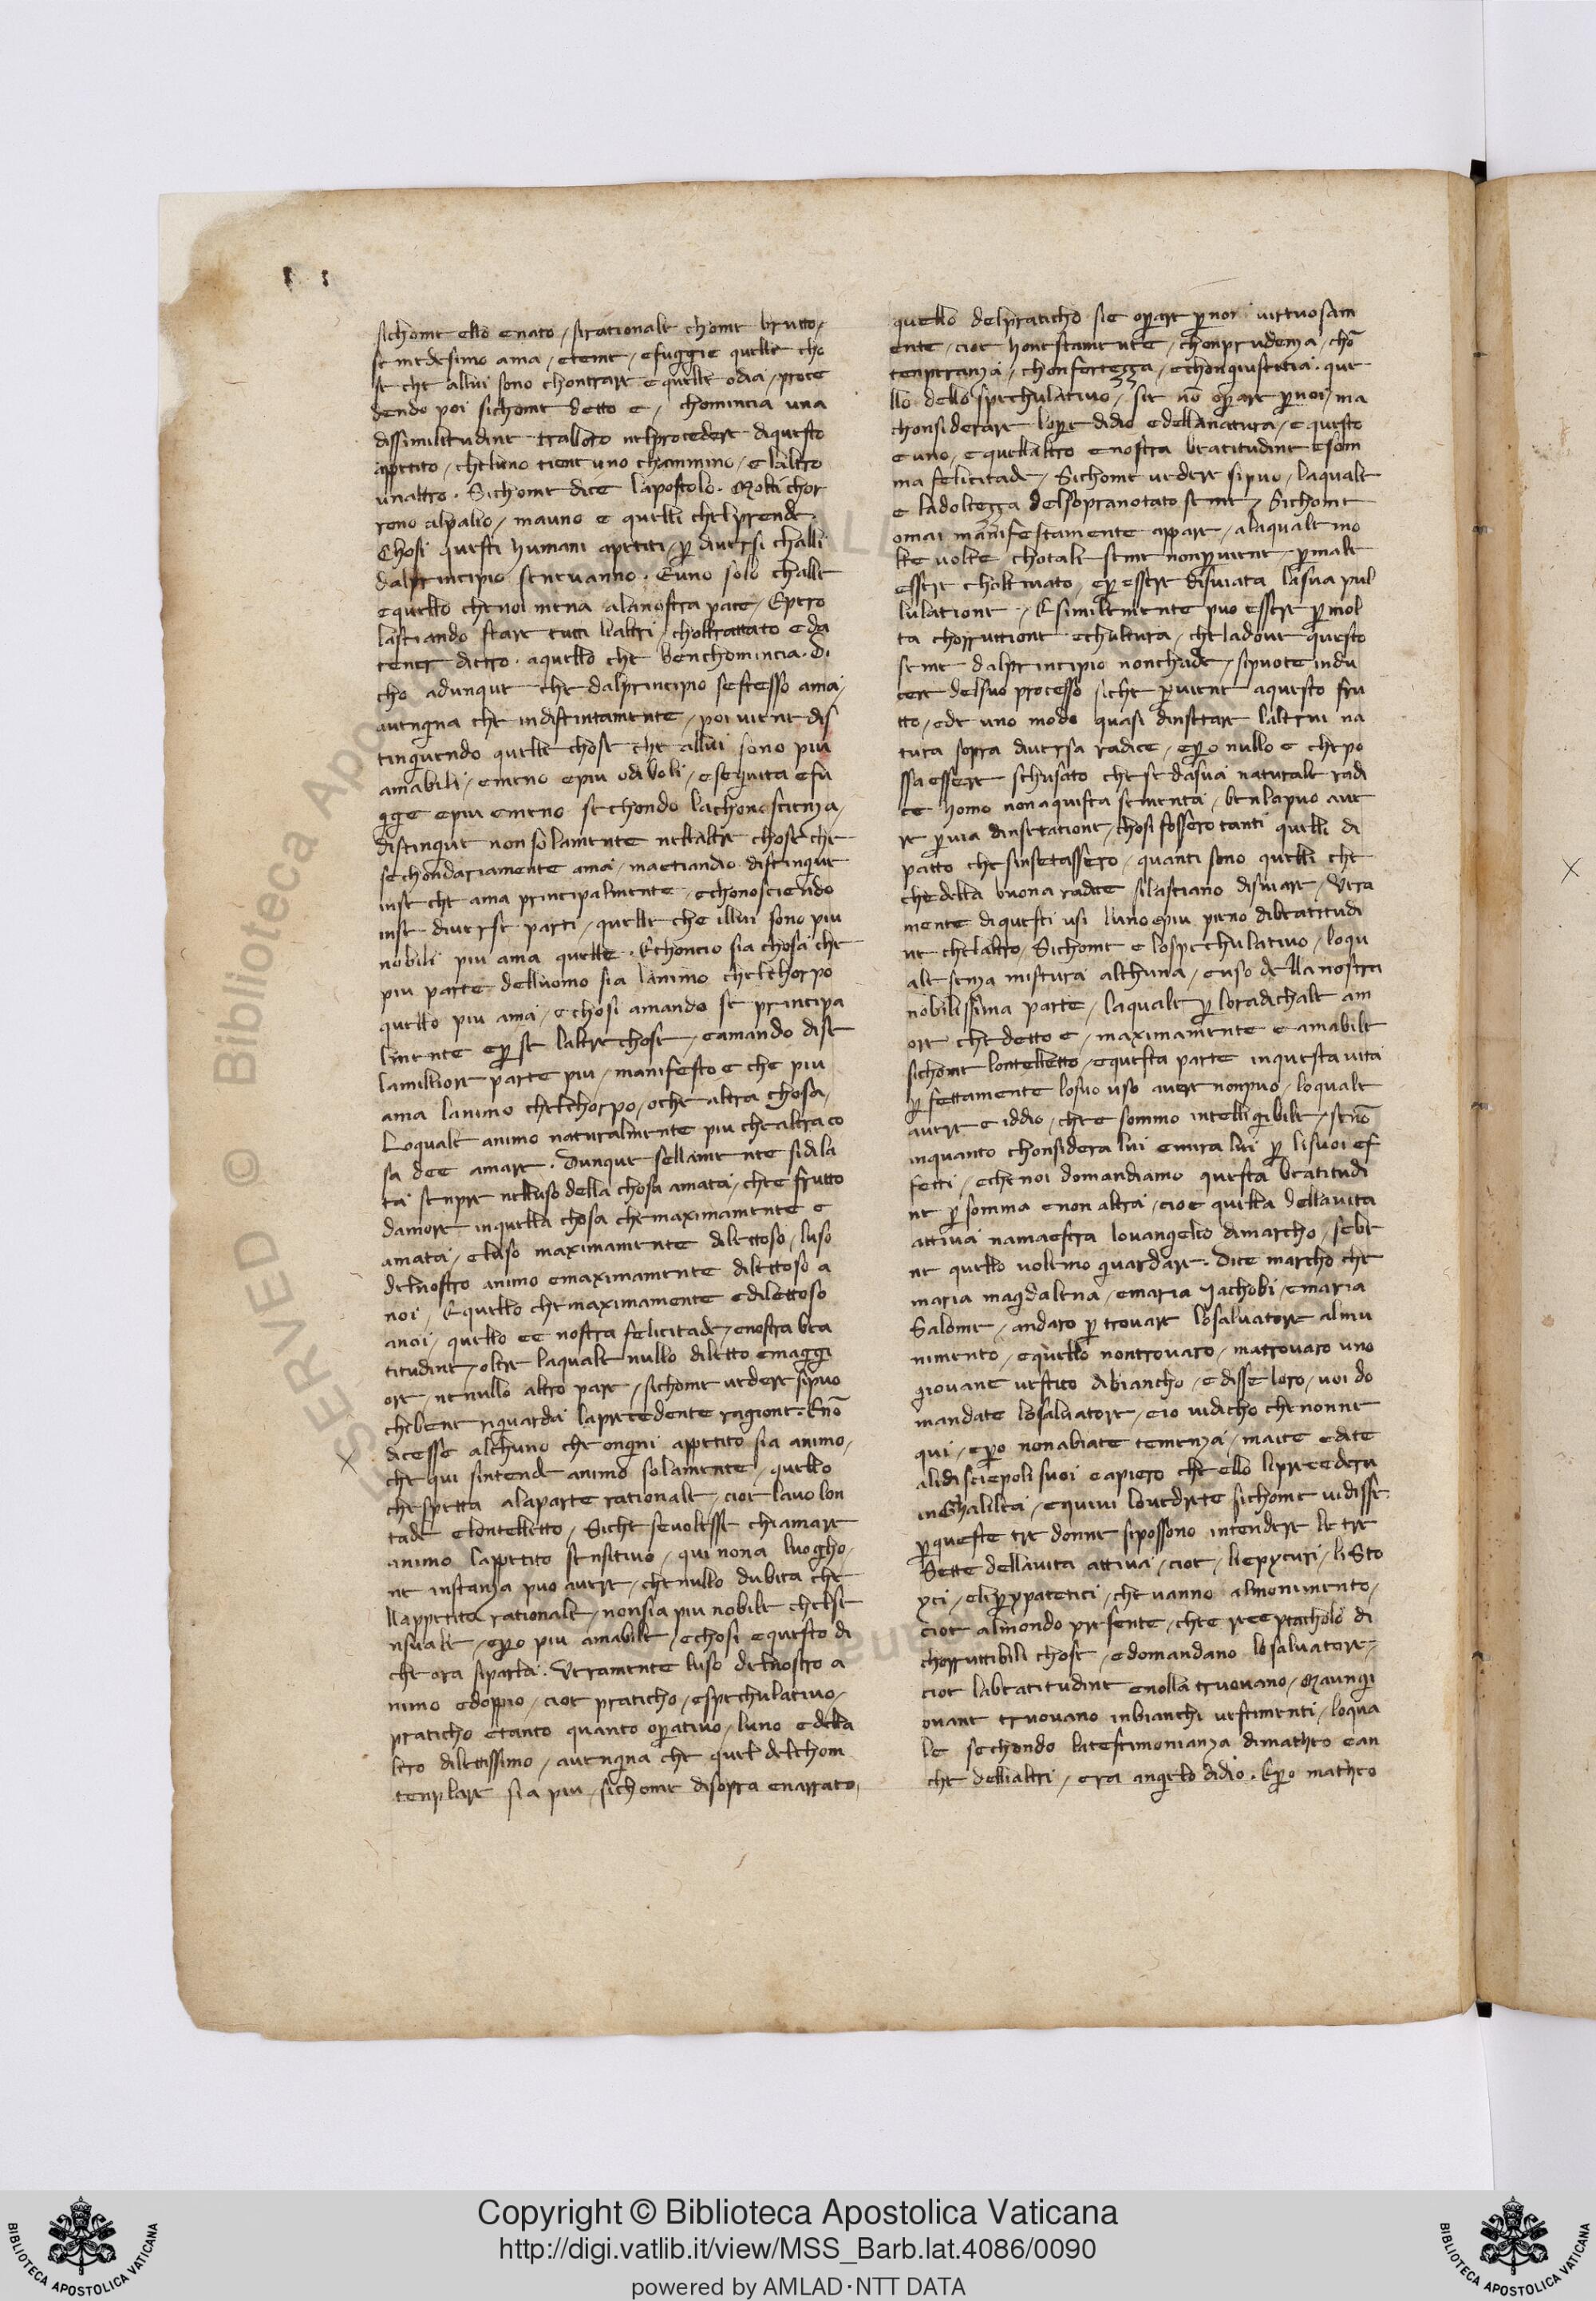 sichome ello e nato / sirationale chome brutto /
se medesimo ama / eteme / efuggie quelle cho
se che allui sono chontrare e quelle odia / proce
dendo poi sichome detto e / chomincia una
dissimilitudine tralloro nelprocedere diquesto
appetito / cheluno tiene uno chammino / e laltro
unaltro . Sichome dice lapostolo . Molti chor
reno alpalio / mauno e quelli chelprende .
Chosi questi humani apetiti / ꝑ diuersi challi
dalprincipio seneuanno . Euno solo challe
equello chenoi mena alanostra pace / Epero
lasciando stare tutti lialtri / choltrattato e da
tener dietro . aquello che benchomincia . Di
cho adunque che dalprincipio sestesso ama /
auengna che indistintamente / poi uiene dis
tinguendo quelle chose che allui sono piu
amabili / emeno epiu odiboli / eseguita efu
gge epiu emeno sechondo lachonoscienza /
distingue nonsolamente nellaltre chose che
sechondariamente ama / maetiandio distingue
inse che ama principalmente / echonosciendo
inse diuerse parti / quelle che illui sono piu
nobili piu ama quelle . Echoncio sia chosa che
piu parte delluomo sia lanimo chelchorpo
quello piu ama / echosi amando se principa
lmente epꝑ se laltre chose / eamando dise
lamilliore parte piu / manifesto e che piu
ama lanimo chelchorpo / oche altra chosa /
Loquale animo naturalmente piu chealtra co
sa dee amare . Dunque sellamente sidila
ta senpre nelluso della chosa amata / che frutto
damore inquella chosa chemaximamente e
amata / eluso maximamente dilettoso / luso
delnostro animo emaximamente dilettoso a
noi / Equello chemaximamente edilettoso
anoi / quello ee nostra felicitade / enostra bea
titudine / oltre laquale nullo diletto emaggi
ore / ne nullo altro pare / sichome uedere sipuo
chibene riguarda laprecedente ragione . Enō
dicesse alchuno che ongni appetito sia animo /
che qui sintende animo solamente / quello
chespetta alaparte rationale / cioe lauolon
tade elontelletto / Siche seuolesse chiamare
animo lappetito sensitiuo / qui nona luogho /
ne instanza puo auere / chenullo dubita che
llappetito rationale / nonsia piu nobile chelse
nsuale / epꝑo piu amabile / echosi equesto di
che ora siparla . Veramente luso delnostro a
nimo edoppio / cioe praticho / espechulatiuo /
praticho etanto quanto oꝑatiuo / luno edella
ltro dilettissimo / auengna che quel delchon
tenplare sia piu / sichome disopra enarrato /
quello delpraticho sie oꝑare ꝑ noi uirtuosam
ente / cioe honestamente / chonprudenza / chō
tenperanza / chonfortezza / echongiustitia . que
llo dello spechulatiuo / sie nō oꝑare ꝑ noi / ma
chonsiderare lopre didio edellanatura / e questo
e uno / e quellaltro e nostra beatitudine esom
ma felicitade / Sichome uedere sipuo / laquale
e ladolcezza delsopranotato seme / Sichome
omai manifestamente appare / alaquale mo
lte uolte chotale seme nonꝑuiene / ꝑ male
essere choltiuato / epꝑ essere disuiata lasua pul
lulatione / Esimilemente puo essere ꝑ mol
ta chorruttione echultura / cheladoue questo
seme dalprincipio nonchade / sipuote indu
cere delsuo processo siche ꝑuiene aquesto fru
tto / ede uno modo quasi dinsetare laltrui na
tura sopra diuersa radice / epꝑo nullo e chepo
ssa essere schusato chese dasua naturale radi
ce homo nonaquista sementa / benlapuo aue
re ꝑ uia dinsetatione / chosi fossero tanti quelli di
patto chesinsetassero / quanti sono quelli che
chedella buona radice silasciano disuiare / Vera
mente diquesti usi luno epiu pieno dibeatitudi
ne chelaltro / Sichome e lospechulatiuo / loqu
ale senza mistura alchuna / euso della nostra
nobilissima parte / laquale ꝑ loradichale am
ore chedetto e / maximamente e amabile
sichome lontelletto / equesta parte inquesta uita
ꝑfettamente losuo uso auere nonpuo / loquale
auere e iddio / chee sommo intelligibile / senō
inquanto chonsidera lui emira lui ꝑ lisuoi ef
fetti / echenoi domandiamo questa beatitudi
ne ꝑ somma enon altra / cioe quella dellauita
attiua namaestra louangelio dimarcho / sebe
ne quello uolemo guardare . Dice marcho che
maria magdalena / emaria Jachobi / emaria
Salome / andaro ꝑ trouare losaluatore almu
nimento / equello nontrouaro / matrouaro uno
giouane uestito dibiancho / e disse loro / uoi do
mandate losaluatore / eio uidicho chenonne
qui / epꝑo nonabiate temenza / maite edite
alidisciepoli suoi eapiero che ello liprecedera
inGhalilea / equiui louedrete sichome uidisse .
ꝑqueste tre donne sipossono intendere le tre
Sette dellauita attiua / cioe / liepycuri / liSto
yci / eliꝑypatetici / che uanno almonimento /
cioe almondo presente / chee receptacholo di
chorruttibili chose / edomandano losaluatore /
cioe labeatitudine enolla truouano / Maungi
ouane truouano inbianchi uestimenti / loqua
le sechondo latestimonianza dimatheo ean
che dellialtri / era angielo didio . Epꝑo matheo
Copyright © Biblioteca Apostolica Vaticana
http://digi.vatlib.it/view/MSS_Barb.lat.4086/0090
powered by AMLAD·NTT DATA
BIBLIOTECA APOSTOLICA VATICANA
BIBLIOTECA APOSTOLICA VATICANA